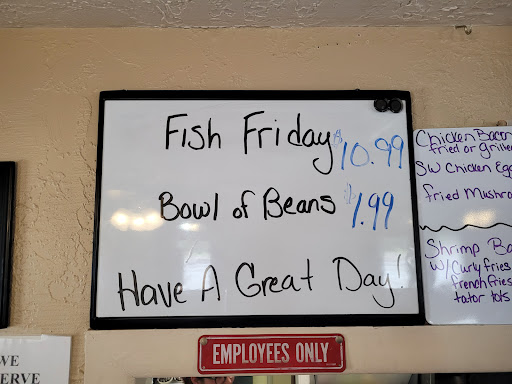 Fish Friday $10.99
Bowl of Beans $1.99
Have A Great Day!
Chicken Bacon
fried or grille
SW Chicken Eg
fried Mushro
Shrimp Ba
w/curly fries
french fries
tator tots
EMPLOYEES ONLY
WE
ERVE